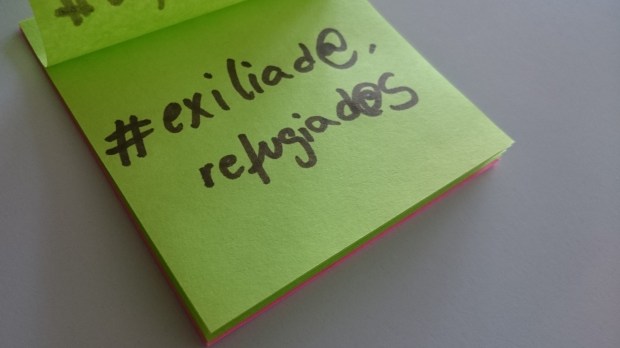 #exiliad@,
refugiad@s